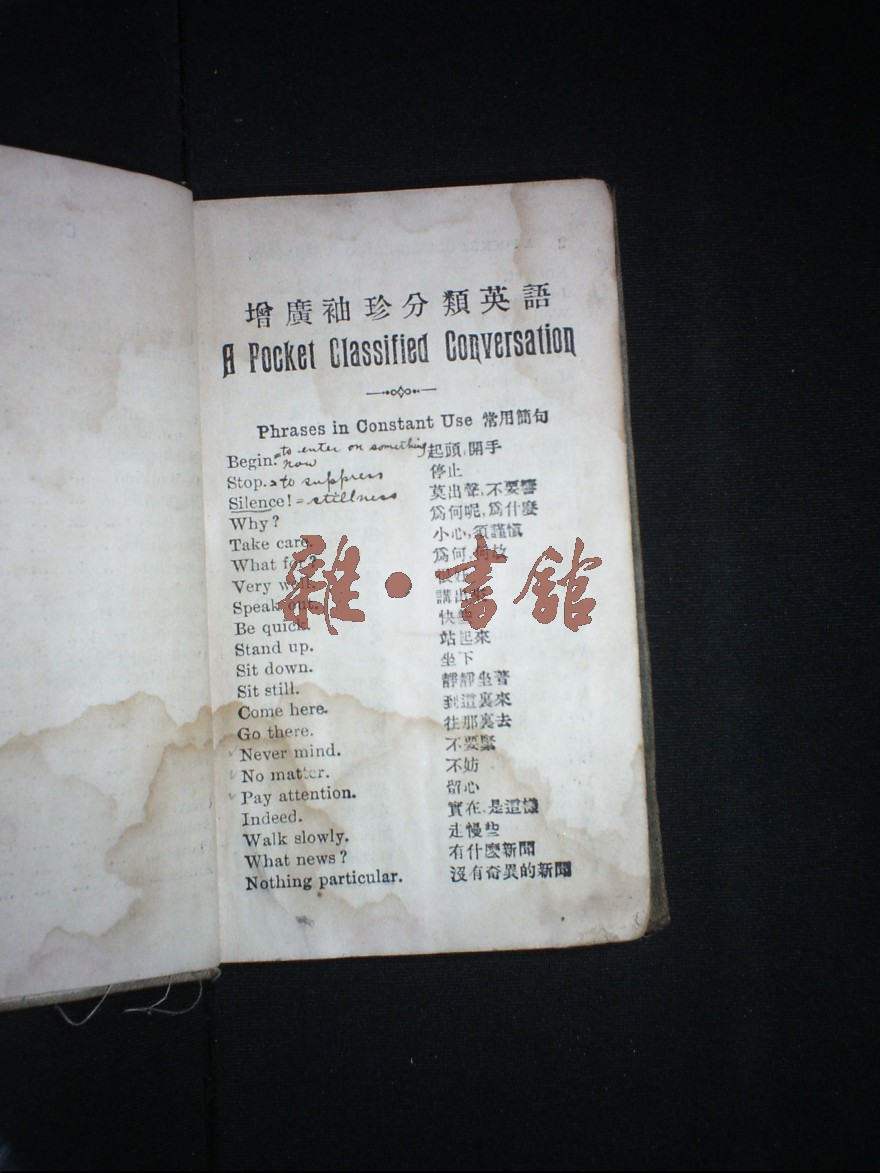 增廣袖珍分類英語
A Pocket Classified Conversation
Phrases in Constant Use 常用簡句
Begin. = to enter on something now 起頭,開手
Stop. = to suppress 停止
Silence! = stillness 莫出聲,不要響
Why? 爲何呢,爲什麼
Take care. 小心,須謹慎
What for? 爲何,何故
Very well. 很好
Speak out. 講出來
Be quick. 快些
Stand up. 站起來
Sit down. 坐下
Sit still. 靜靜坐著
Come here. 到這裏來
Go there. 往那裏去
Never mind. 不要緊
No matter. 不妨
Pay attention. 留心
Indeed. 實在,是這樣
Walk slowly. 走慢些
What news? 有什麼新聞
Nothing particular. 沒有奇異的新聞
雜·書館